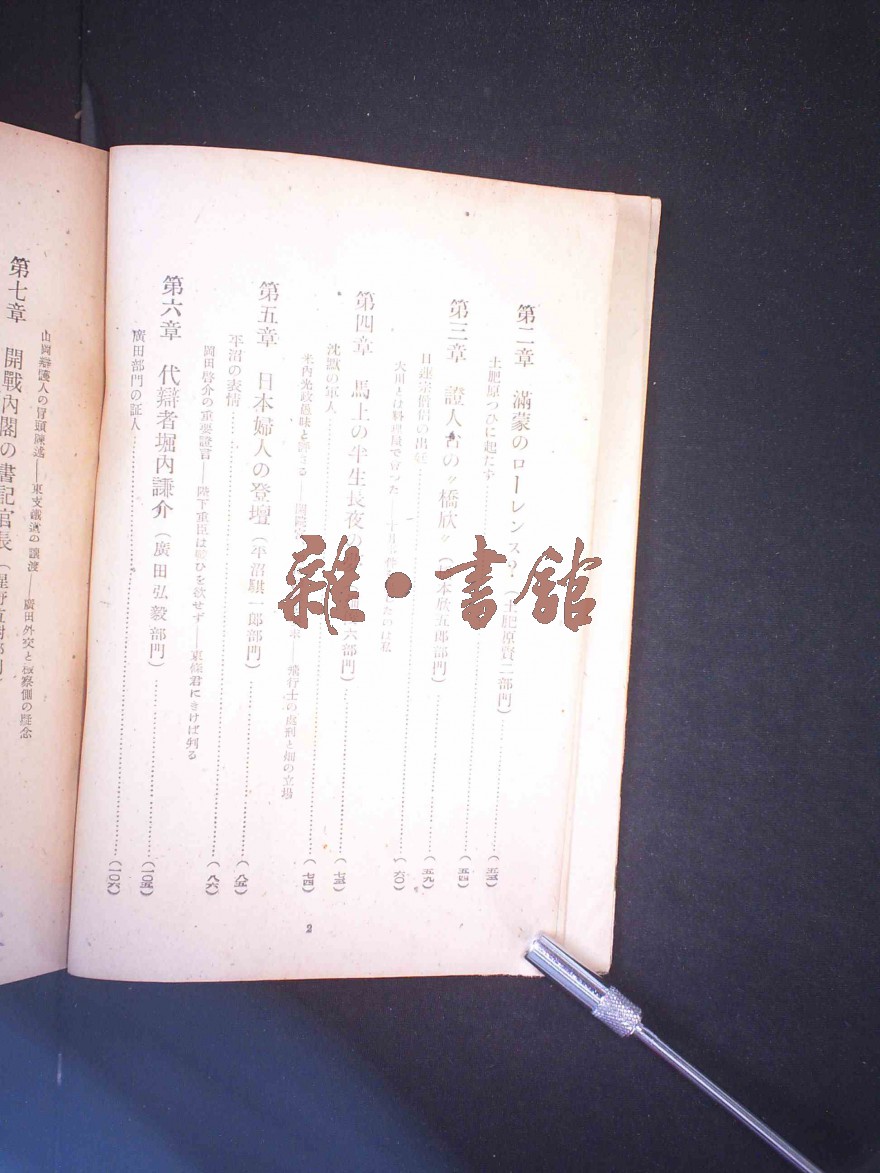 第二章 滿蒙のローレンス?(土肥原賢二部門)
土肥原つひに起たず……(五三)
第三章 證人台の〃橋欣〃(本欣五郎部門)……(五四)
日連宗僧侶の出……(五九)
大川とは料理屋で會つた――十月たのは私……(六〇)
第四章 馬上の半生長夜の六部門)……(七三)
沈默の軍人……(七四)
米内光政 飛行士の處刑と畑の立場
第五章 日本婦人の登壇(平沼騏一郎部門)……(八五)
平沼の表情……(八六)
岡田啓介の重要證言――陛下重臣は戰ひを欲せず――東條君にきけば判る
第六章 代辯者堀内謙介(廣田弘毅部門)……(一〇五)
廣田部門の証人……(一〇六)
山岡辯護人の冒頭陳述――東支鐵道の讓渡――廣田外交と檢察側の疑念
第七章 開戰内閣の書記官長(星野直樹部
2
雜・書館